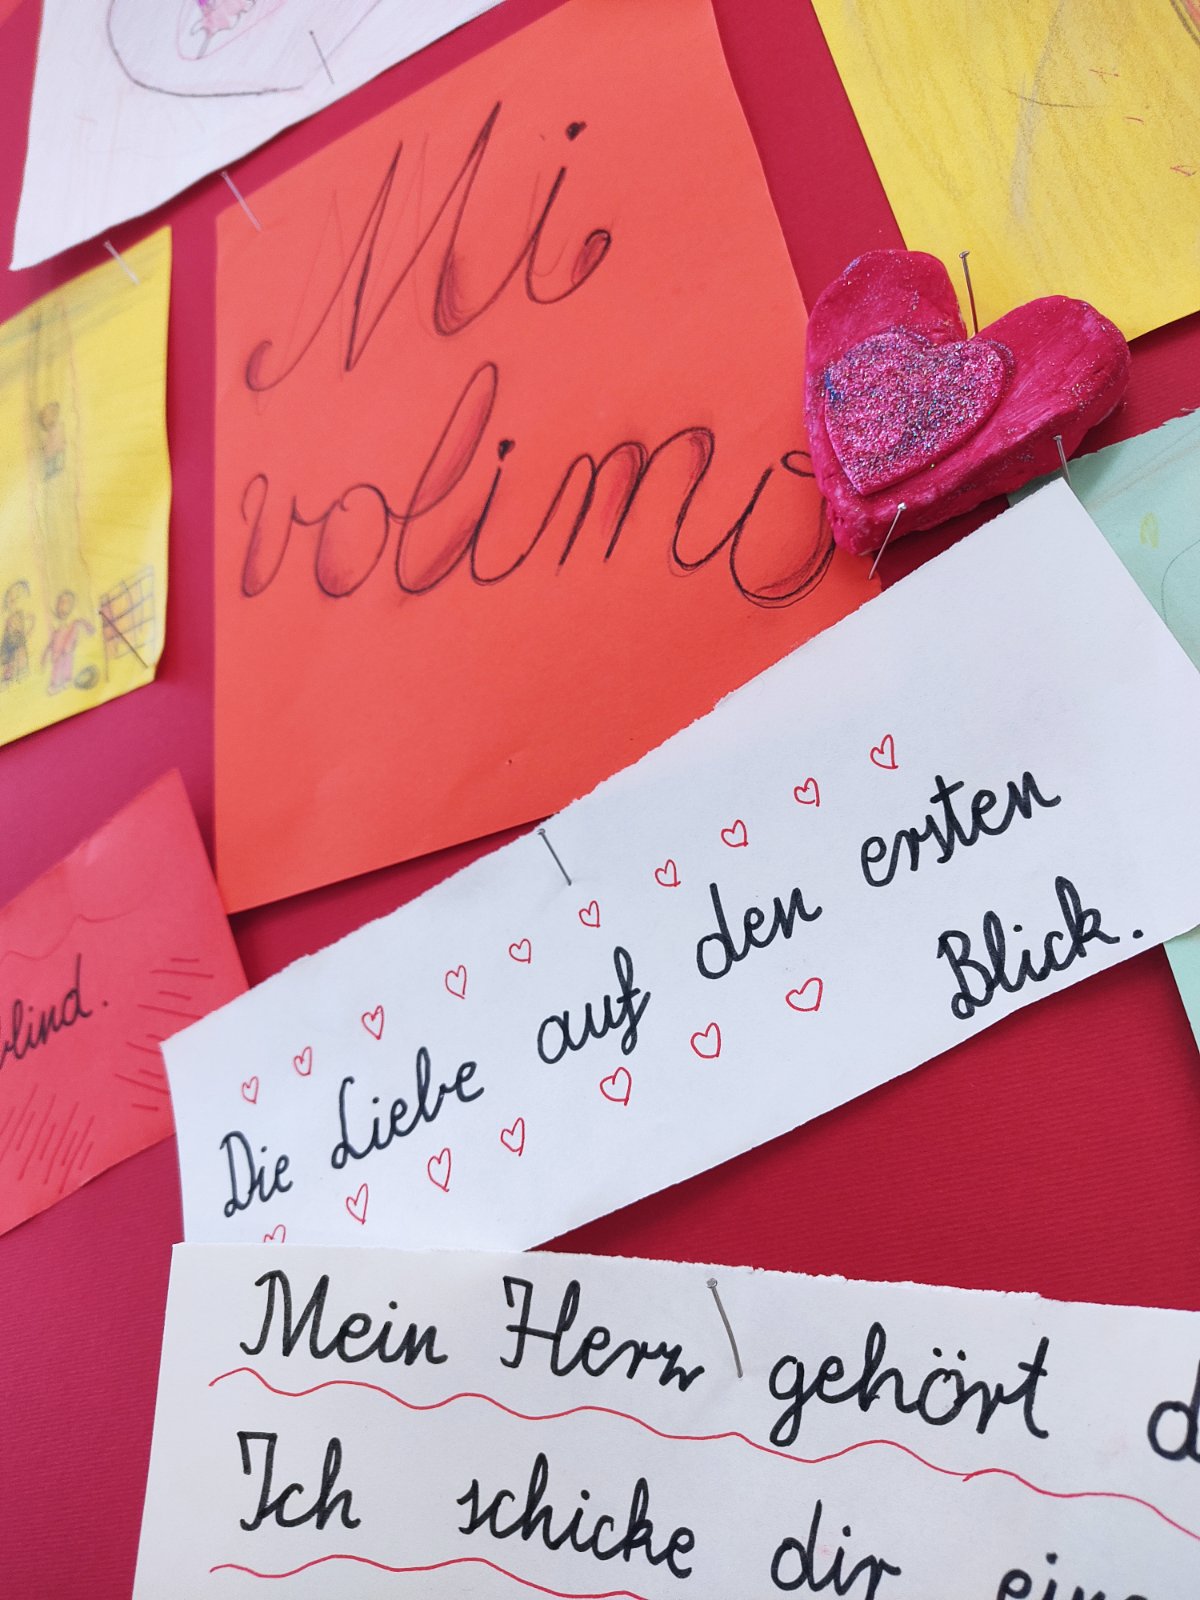 Mi
volimo
blind.
Die Liebe auf den ersten
Blick.
Mein Herz gehört
Ich schicke dir